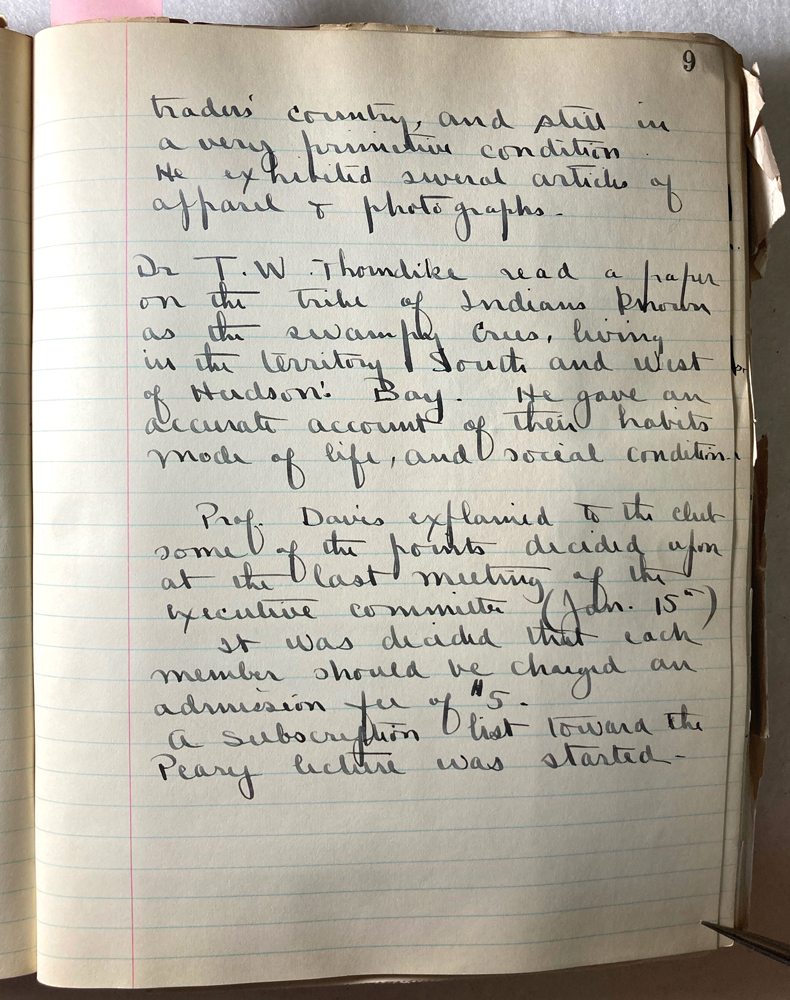 9
traders' country, and still in
a very primitive condition.
He exhibited several articles of
apparel & photographs.
Dr T. W. Thorndike read a paper
on the tribe of Indians known
as the swampy Crees, living
in the territory South and West
of Hudson's Bay. He gave an
accurate account of their habits
mode of life, and social condition.
Prof. Davis explained to the club
some of the points decided upon
at the last meeting of the
executive committee (Jan. 15th)
It was decided that each
member should be charged an
admission fee of $5.
A Subscription list toward the
Peary lecture was started-